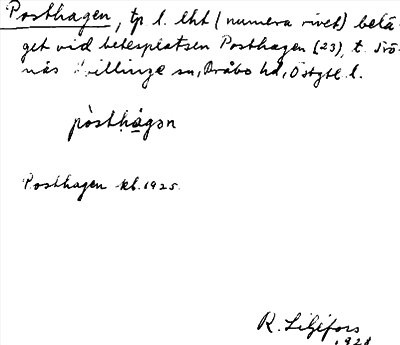 Posthagen, tp l. lht (numera rivet) belä-
get vid betesplatsen Posthagen (23), t. Srö-
näs Kvillinge sn, Bråbo hd, Östgtl l.
pòsthàgən
Posthagen kb. 1925.
R. Liljefors
1928